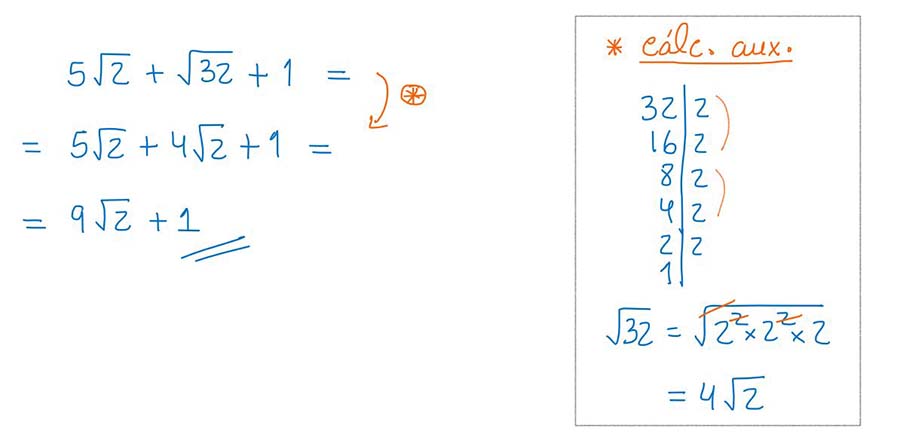 5√2 + √32 + 1 =
= 5√2 + 4√2 + 1 =
= 9√2 + 1
* cálc. aux.
32 | 2
16 | 2
8 | 2
4 | 2
2 | 2
1 |
√32 = √2² × 2² × 2
= 4√2